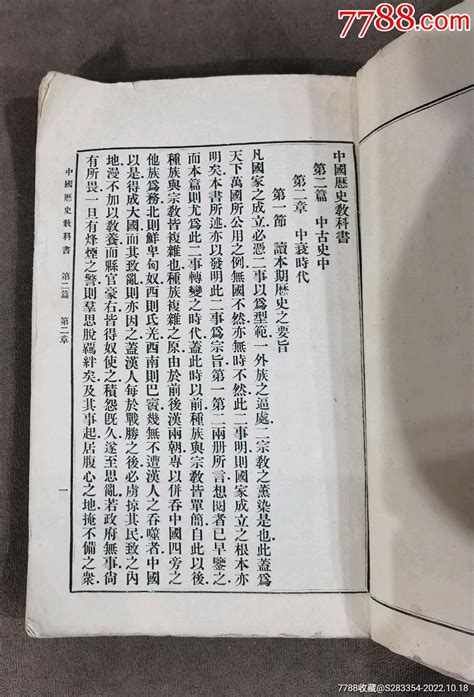 7788.com
中國歷史敎科書
第二篇 中古史中
第二章 中衰時代
第一節 讀本期歷史之要旨
凡國家之成立必憑二事以爲型範一外族之逼處二宗敎之薰染是也此蓋爲
天下萬國所公用之例無國不然亦無時不然此二事明則國家成立之根本亦
明矣本書所述亦以發明此二事爲宗旨第一第二兩册所言想閱者已早鑒之
而本篇則尤爲此二事轉變之時代蓋此時以前種族與宗敎皆單簡自此以後
種族與宗敎皆複雜也種族複雜之原由於前後漢兩朝專以併吞中國四旁之
他族爲務北則鮮卑匈奴西則氐羌西南則巴賨幾無不遭漢人之吞噬者中國
以是得成大國而其致亂則亦因之蓋漢人每於戰勝之後必虜掠其民致之內
地漫不加以敎養而縣官豪右皆得奴使之積怨旣久遂至思亂若政府無事尙
有所畏一旦有烽煙之警則羣思脫羈絆矣及其事起居腹心之地掩不備之衆
中國歷史敎科書 第二篇 第二章
一
7788收藏@S283354-2022.10.18